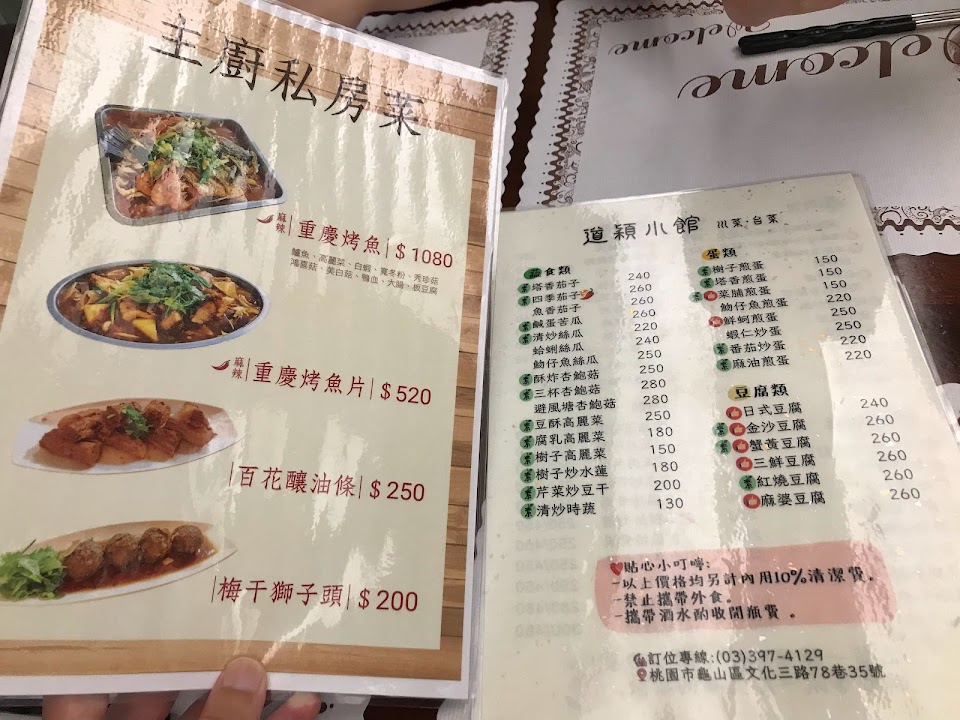 主廚私房菜
麻辣 重慶烤魚 $1080
鱸魚、高麗菜、白蝦、寬冬粉、秀珍菇
鴻喜菇、美白菇、鴨血、大腸、板豆腐
麻辣 重慶烤魚片 $520
百花釀油條 $250
梅干獅子頭 $200
Welcome
Welcome
道穎小館 川菜·台菜
蔬食類
素 塔香茄子 240
素 四季茄子 260
魚香茄子 260
素 鹹蛋苦瓜 260
素 清炒絲瓜 220
蛤蜊絲瓜 240
吻仔魚絲瓜 250
素 酥炸杏鮑菇 250
素 三杯杏鮑菇 280
避風塘杏鮑菇 280
素 豆酥高麗菜 250
素 腐乳高麗菜 180
素 樹子高麗菜 150
素 樹子炒水蓮 180
素 芹菜炒豆干 200
素 清炒時蔬 130
蛋類
素 樹子煎蛋 150
素 塔香煎蛋 150
素 菜脯煎蛋 150
吻仔魚煎蛋 220
鮮蚵煎蛋 250
蝦仁炒蛋 250
素 番茄炒蛋 220
素 麻油煎蛋 220
豆腐類
日式豆腐 240
素 金沙豆腐 260
素 蟹黃豆腐 260
三鮮豆腐 260
素 紅燒豆腐 260
麻婆豆腐 260
貼心小叮嚀:
-以上價格均另計內用10%清潔費。
-禁止攜帶外食。
-攜帶酒水酌收開瓶費。
訂位專線:(03)397-4129
桃園市龜山區文化三路78巷35號